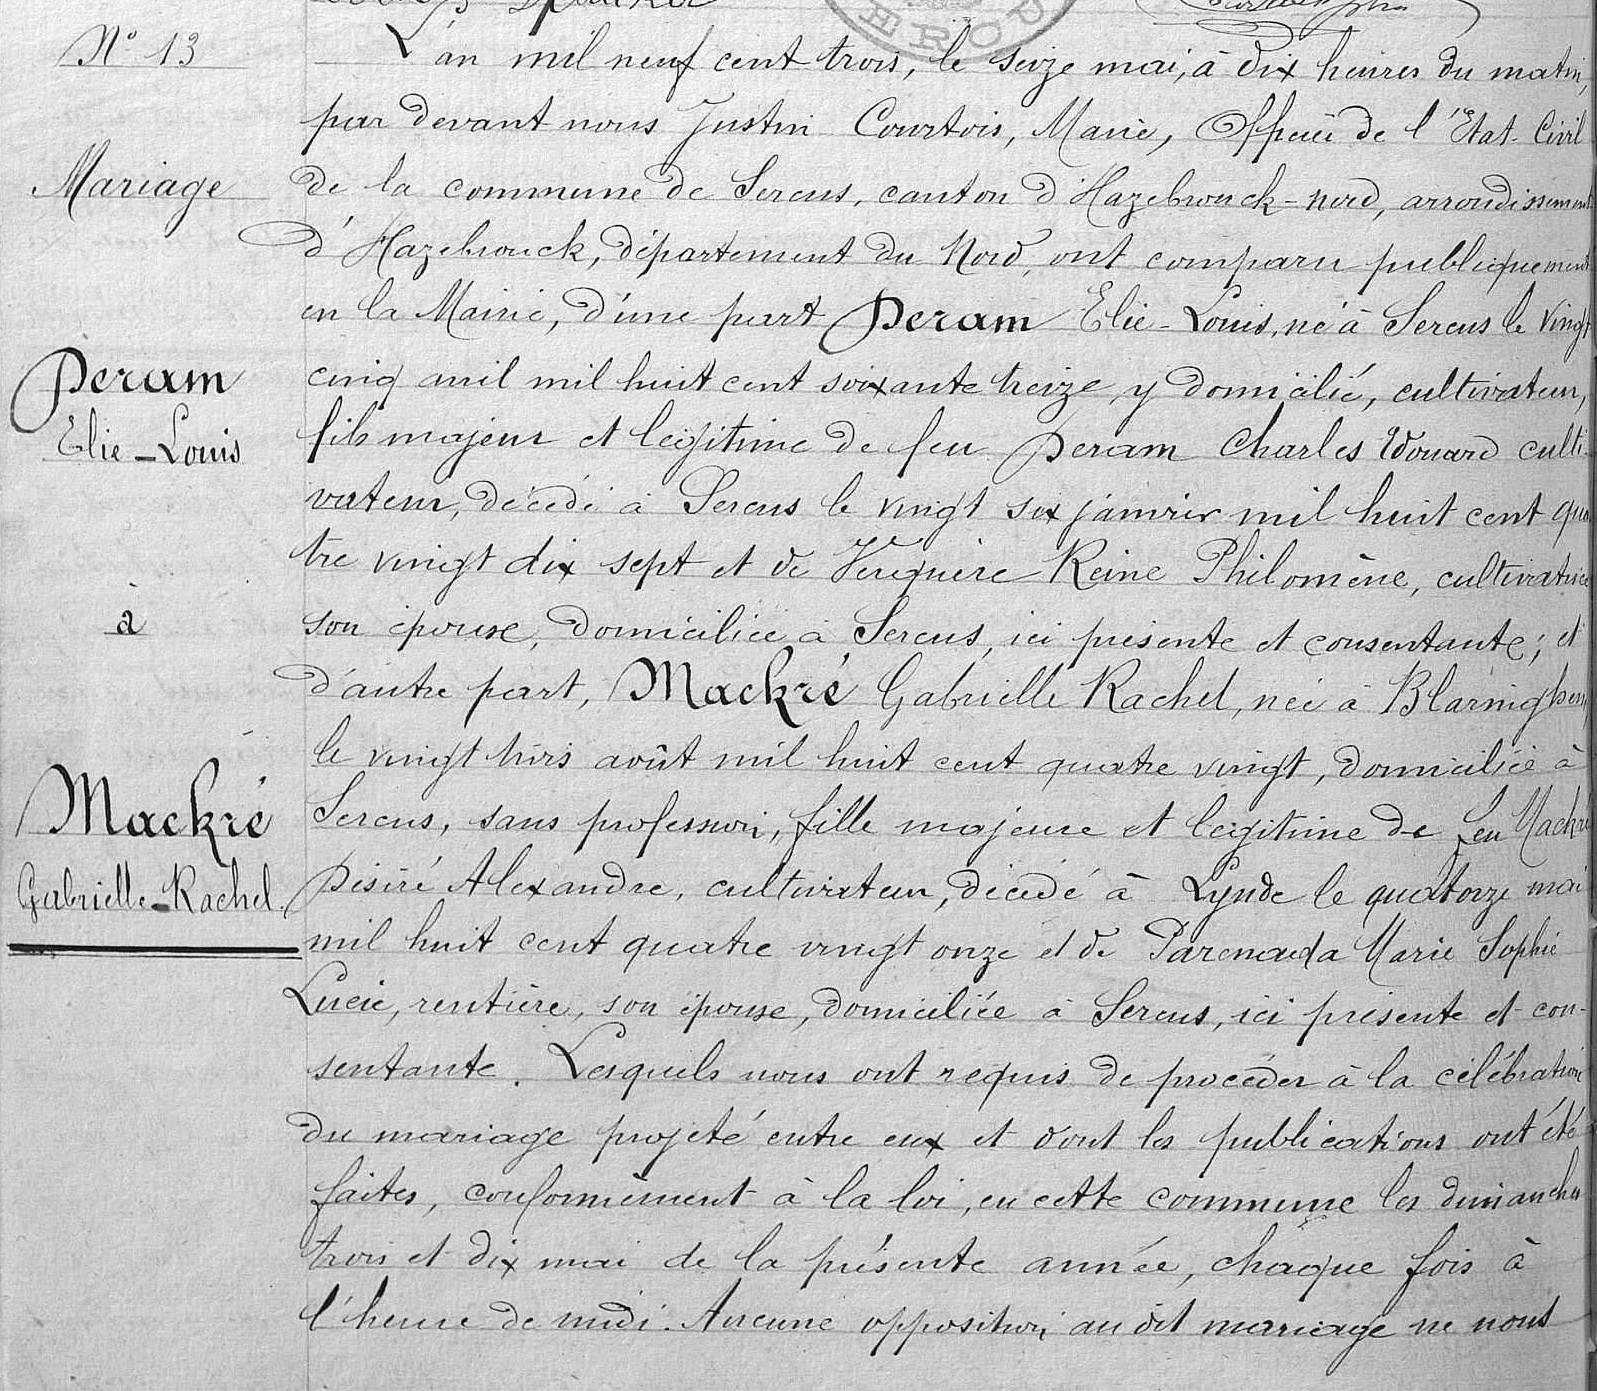 N° 13
Mariage
Deram
Elie-Louis
à
Mackré
Gabrielle-Rachel.
L'an mil neuf cent trois, le seize mai, à dix heures du matin,
par devant nous Justin Courtois, Maire, Officier de l'Etat-Civil
de la commune de Sercus, canton d'Hazebrouck-nord, arrondissement
d'Hazebrouck, département du Nord, ont comparu publiquement
en la Mairie, d'une part Deram Elie-Louis, né à Sercus le vingt
cinq avril mil huit cent soixante treize y domicilié, cultivateur,
fils majeur et légitime de feu Deram Charles Edouard culti-
vateur, décédé à Sercus le vingt six janvier mil huit cent qua
tre vingt dix sept et de Verquère Reine Philomène, cultivatrice
son épouse, domiciliée à Sercus, ici présente et consentante; et
d'autre part, Mackré Gabrielle Rachel, née à Blaringhem,
le vingt trois août mil huit cent quatre vingt, domiciliée à
Sercus, sans profession, fille majeure et légitime de feu Mackré
Désiré Alexandre, cultivateur, décédé à Lynde le quatorze mai
mil huit cent quatre vingt onze et de Marie Sophie
Lucie, rentière, son épouse, domiciliée à Sercus, ici présente et con-
sentante. Lesquels nous ont requis de procéder à la célébration
du mariage projeté entre eux et dont les publications ont été
faites, conformément à la loi, en cette commune les dimanches
trois et dix mai de la présente année, chaque fois à
l'heure de midi. Aucune opposition au dit mariage ne nous